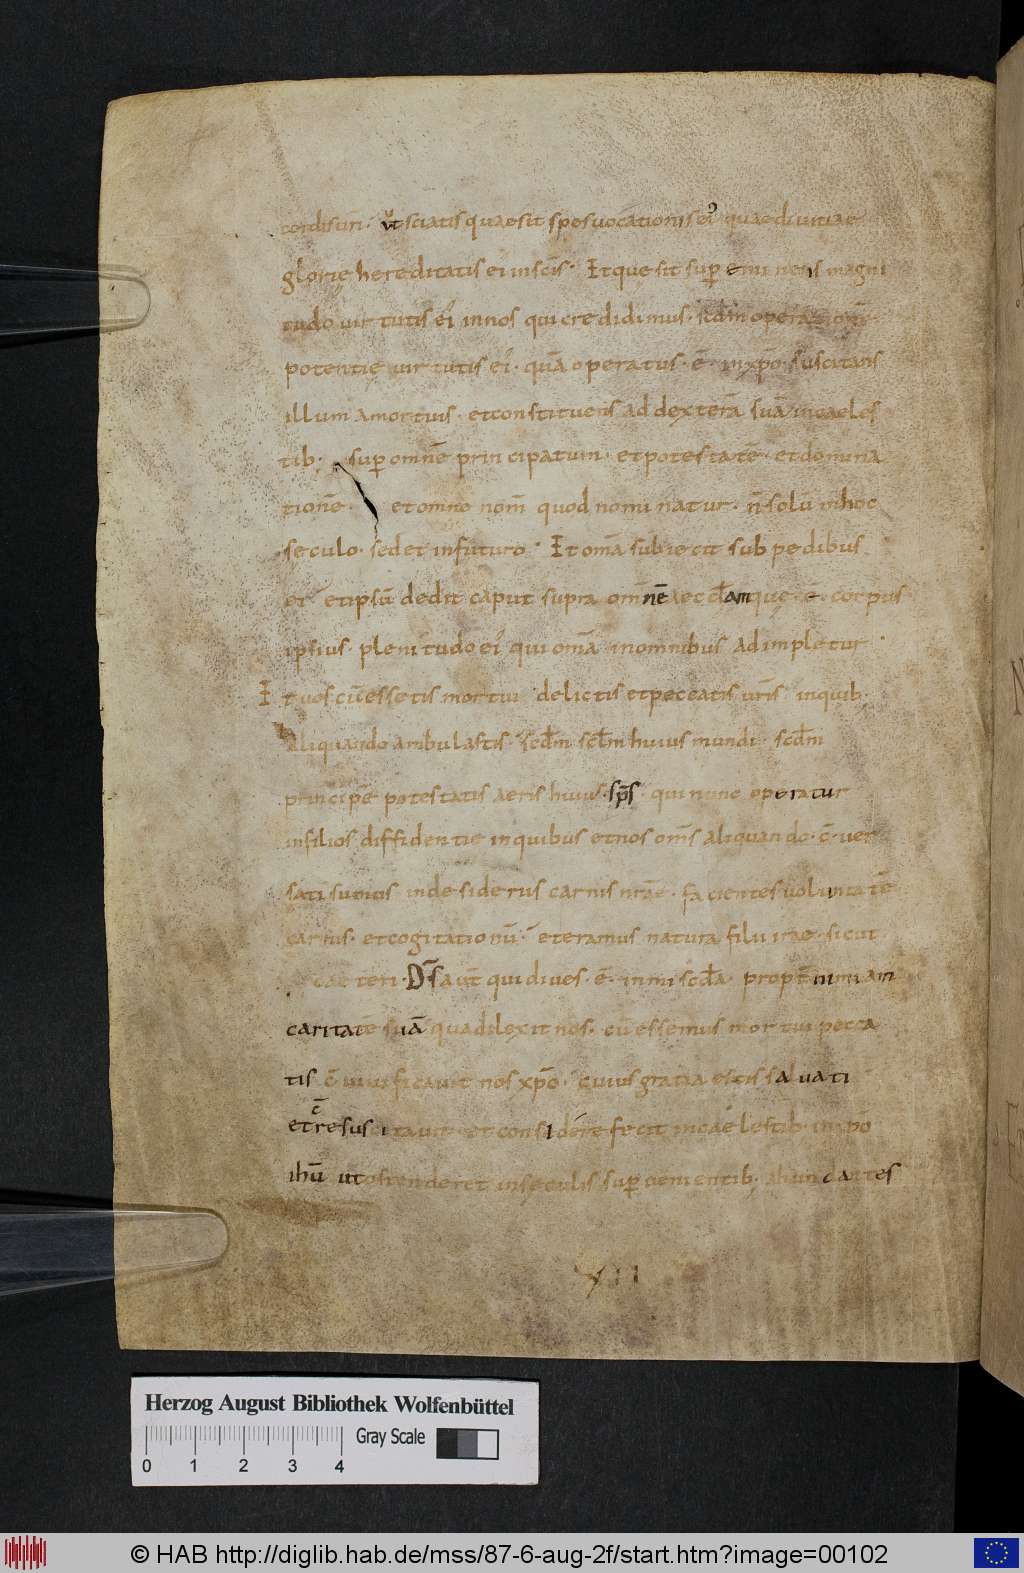 cordis uri · ut sciatis quae sit spes vocationis ei' quae divitiae
glorię hereditatis ei' in scis · Et que sit sup eminens magni
tudo virtutis ei' in nos qui credidimus · scdm operationē
potentię virtutis ei' · quā operatus · ē · in xpo suscitans
illum a mortuis · et constituens ad dexterā suā in caeles
tib; sup omnē principatum · et potestatē · et domina
tionē · et omne nom quod nominatur · n̄ solū in hoc
seculo · sed et in futuro · Et omā subiecit sub pedibus
ei' et ipsū dedit caput supra omnē aeccłam quę · ē · corpus
ipsius · plenitudo ei' qui omā in omnibus adimpletur ·
Et vos cū essetis mortui delictis et peccatis uris in quib;
aliquando ambulastis · scdm sclm huius mundi · scdm
principē potestatis aeris huius · sps · qui nunc operatur
in filios diffidentię in quibus et nos oms aliquando · c̄ · ver
sati sumus in desideriis carnis nrae · facientes voluntatē
carnis · et cogitationū · et eramus natura filii irae · sicut
caeteri · Ds aut qui dives · ē · in miscda propt nimiam
caritatē suā qua dilexit nos · cū essemus mortui pecca
tis c̄vivificavit nos xpo · cuius gratia estis salvati
et c̄resuscitavit · et considere fecit in caelestib; in xpo
ihu ut ostenderet in seculis supvenientib; abundantes
XII
Herzog August Bibliothek Wolfenbüttel
Gray Scale
0 1 2 3 4
© HAB http://diglib.hab.de/mss/87-6-aug-2f/start.htm?image=00102